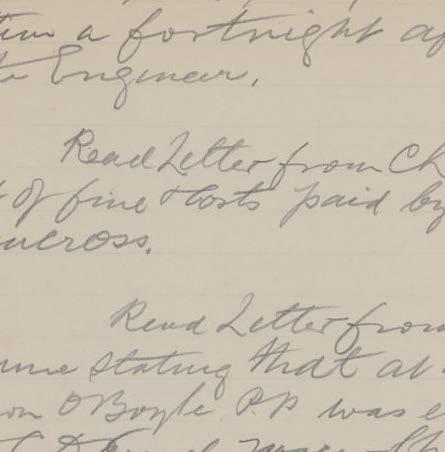 a fortnight
Engineer.
Read Letter from Ch
of fine & Costs paid by
cross.
Read Letter from
stating that at
on O Boyle P.P was e